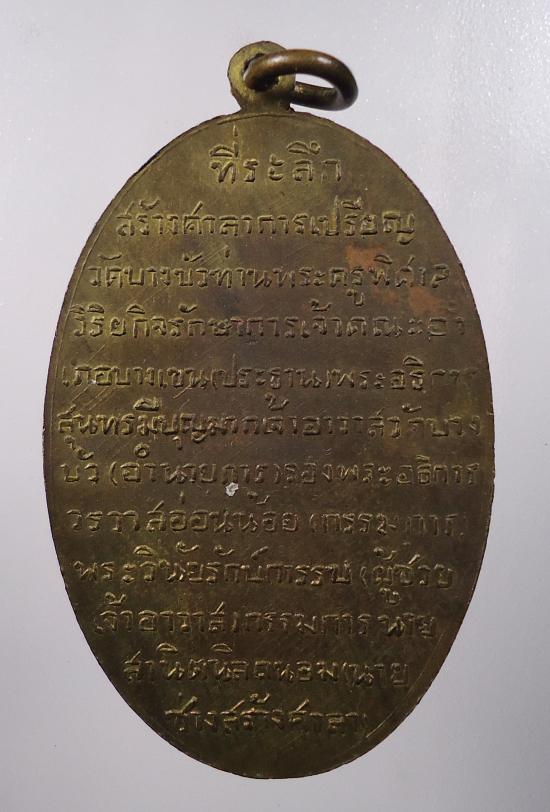 ที่ระลึก
สร้างศาลาการเปรียญ
วัดบางบัวท่านพระครูพิศาล
วิริยกิจรักษาการเจ้าคณะอำ
เภอบางเขน(ประธาน)พระอธิการ
สุนทรมีบุญมากเจ้าอาวาสวัดบาง
บัว (อำนวยการ)รองพระอธิการ
วรวาสอ่อนน้อย (กรรมการ)
พระวินัยรักษ์ (ผู้ช่วย
เจ้าอาวาส)กรรมการ นาย
(นาย
ช่างสร้างศาลา)